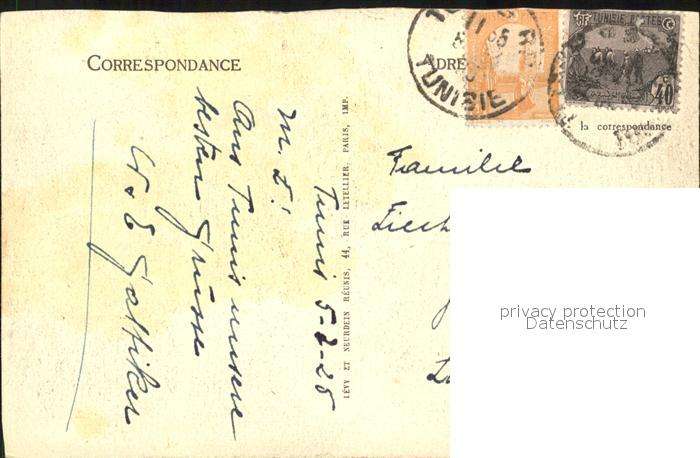 CORRESPONDANCE
TUNIS R.P.
TUNISIE
TUNISIE POSTES
40
la correspondance
Tunis 5-2-25
M. L!
Aus Tunis unsere
besten Grüsse
Gattiker
LÉVY ET NEURDEIN RÉUNIS, 44, RUE LETELLIER, PARIS, IMP.
Familie
privacy protection
Datenschutz